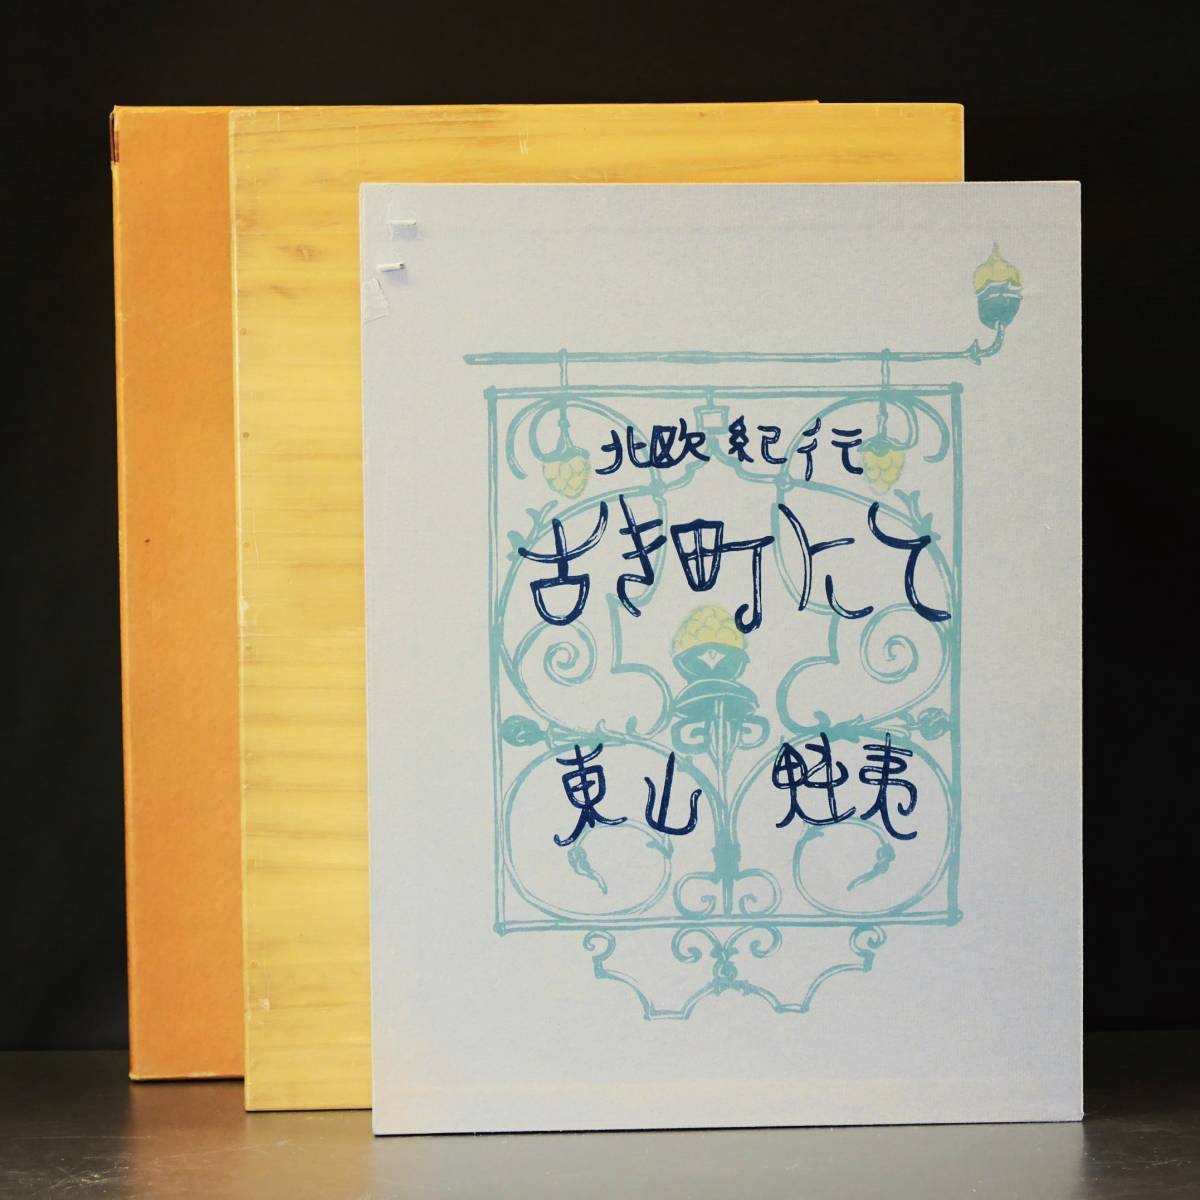 北欧紀行
古き町にて
東山 魁夷